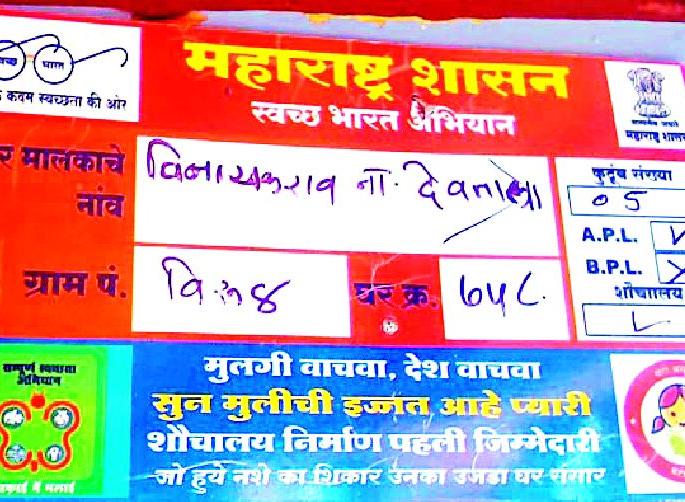 स्वच्छ भारत
कदम स्वच्छता की ओर
महाराष्ट्र शासन
स्वच्छ भारत अभियान
महाराष्ट्र शासन
र मालकाचे
नांव
विनायकराव ना.
कुटूंब संख्या
०5
A.P.L.
B.P.L.
शौचालय
ग्राम पं.
घर क्र. ७५८
सम्पूर्ण स्वच्छता
अभियान
मुलगी वाचवा, देश वाचवा
सुन मुलीची इज्जत आहे प्यारी
शौचालय निर्माण पहली जिम्मेदारी
जो हुये नशे का शिकार उनका उजडा घर संसार